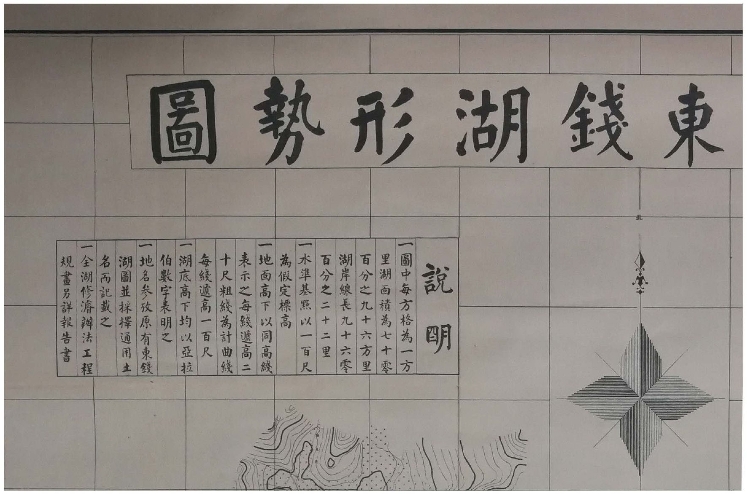 東錢湖形勢圖
說明
一圖中每方格為一方
里湖面積為七十零
百分之九十六方里
湖岸線長九十六零
百分之二十二里
一水準基點以一百尺
為假定標高
一地面高下以同高綫
表示之每綫遞高二
十尺粗綫為計曲綫
每綫遞高一百尺
一湖底高下均以亞拉
伯數字表明之
一地名參攷原有東錢
湖圖並採擇通用土
名而記載之
一全湖修濬辦法工程
規畫另詳報告書